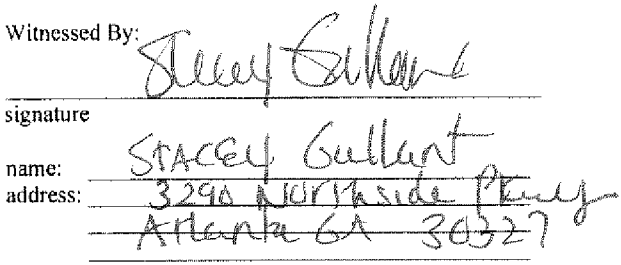 Witnessed By:
Stacey Gallant
signature
name: STACEY Gallant
address: 3290 Northside Pkwy
Atlanta GA 30327